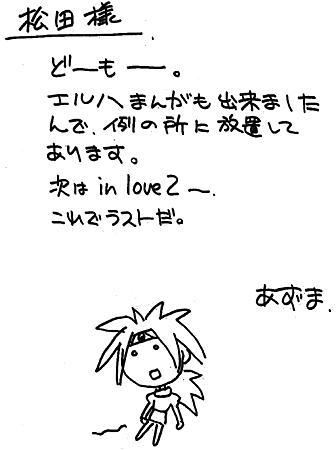 松田様
どーもー。
エルハまんがも出来ました
んで、例の所に放置して
あります。
次は in love 2 〜.
これでラストだ。
あずま.